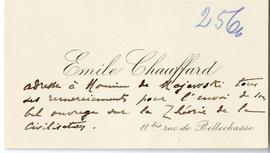 256
Emile Chauffard
adresse à Monsieur de Majewski tous
des remerciements pour l'envoi de son
bel ouvrage sur la Théorie de la
Civilisation.
11 bis rue de Bellechasse